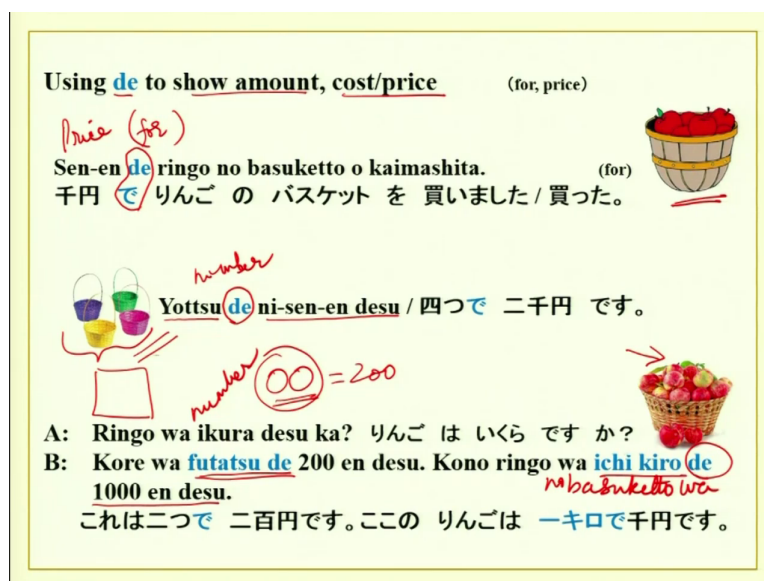 Using de to show amount, cost/price (for, price)
Price (for)
Sen-en de ringo no basuketto o kaimashita. (for)
千円 で りんご の バスケット を 買いました / 買った。
number
Yottsu de ni-sen-en desu / 四つで 二千円 です。
number = 200
A: Ringo wa ikura desu ka? りんご は いくら です か?
B: Kore wa futatsu de 200 en desu. Kono ringo wa ichi kiro de
no basuketto wa
1000 en desu.
これは二つで 二百円です。ここの りんごは 一キロで千円です。